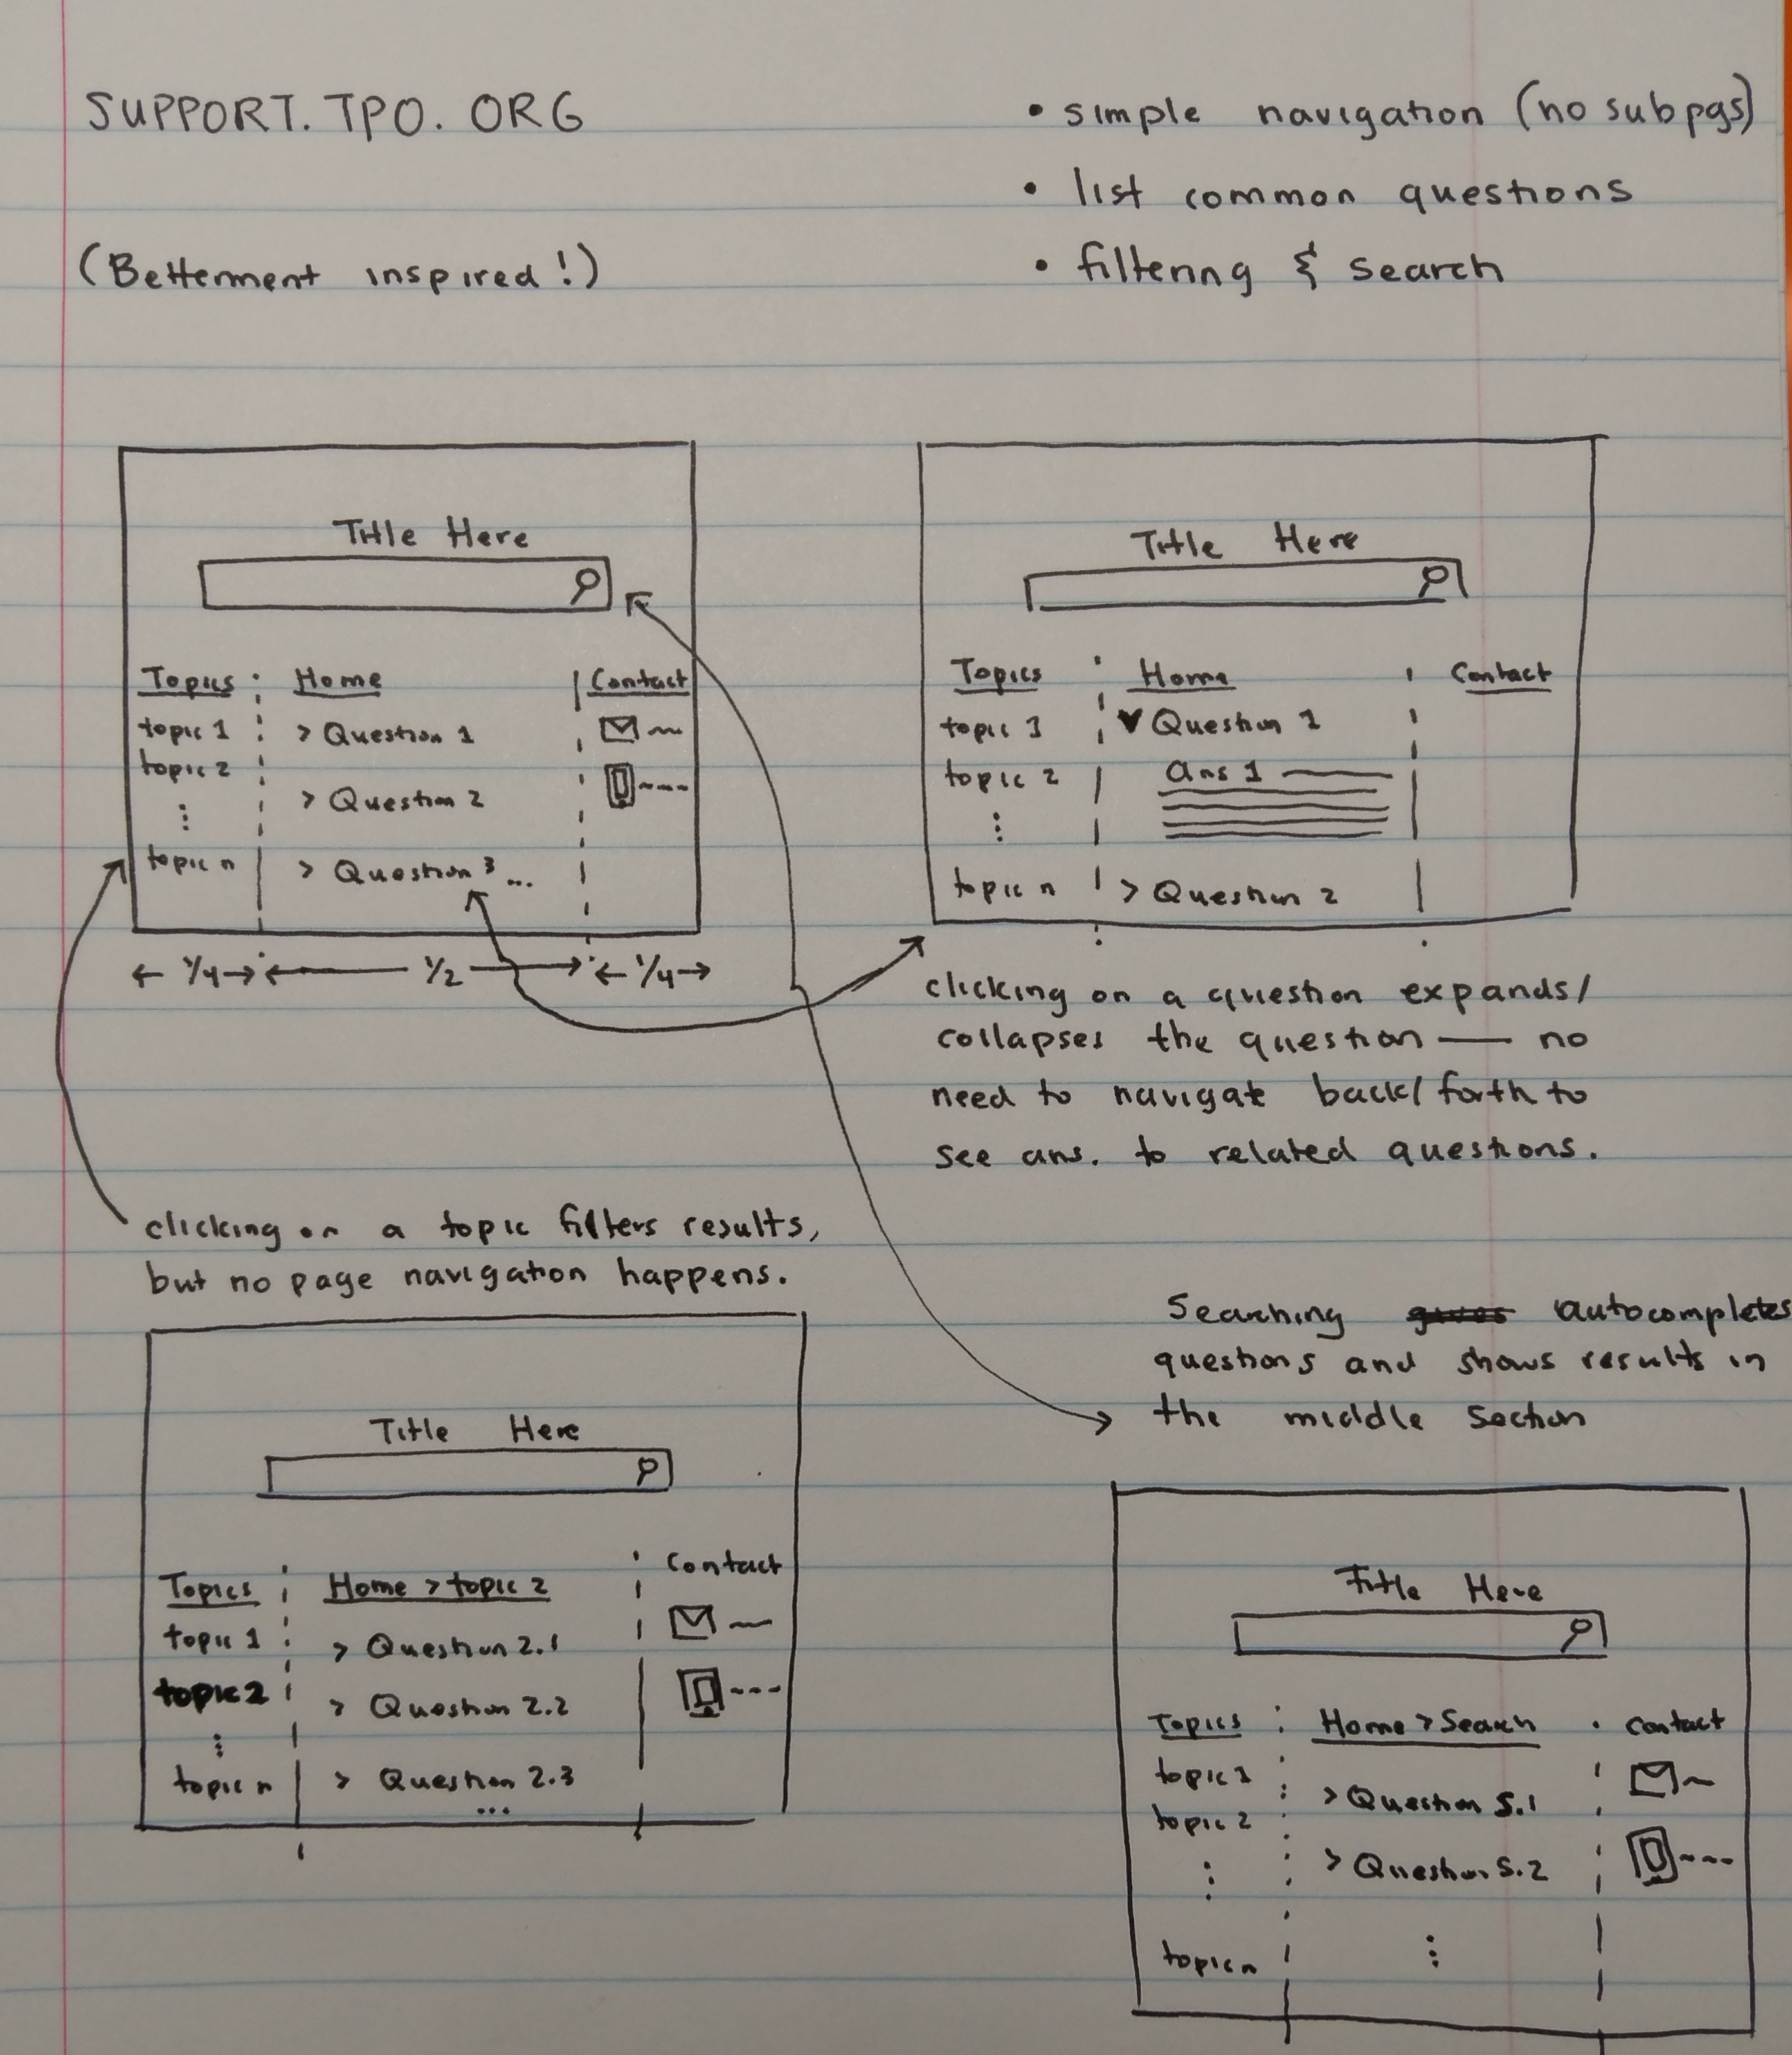 SUPPORT. TPO. ORG
(Betterment inspired!)
• simple navigation (no subpgs)
• list common questions
• filtering & search
Title Here
Topics
topic 1
topic 2
⋮
topic n
Home
> Question 1
> Question 2
> Question 3 ...
Contact
← 1/4 → ← 1/2 → ← 1/4 →
Title Here
Topics
topic 1
topic 2
⋮
topic n
Home
Question 1
ans 1
> Question 2
Contact
clicking on a question expands/
collapses the question — no
need to navigate back/forth to
see ans. to related questions.
clicking on a topic filters results,
but no page navigation happens.
Title Here
Topics
topic 1
topic 2
⋮
topic n
Home > topic 2
> Question 2.1
> Question 2.2
> Question 2.3
...
Contact
Searching autocompletes
questions and shows results in
the middle section
Title Here
Topics
topic 1
topic 2
⋮
topic n
Home > Search
> Question S.1
> Question S.2
⋮
Contact